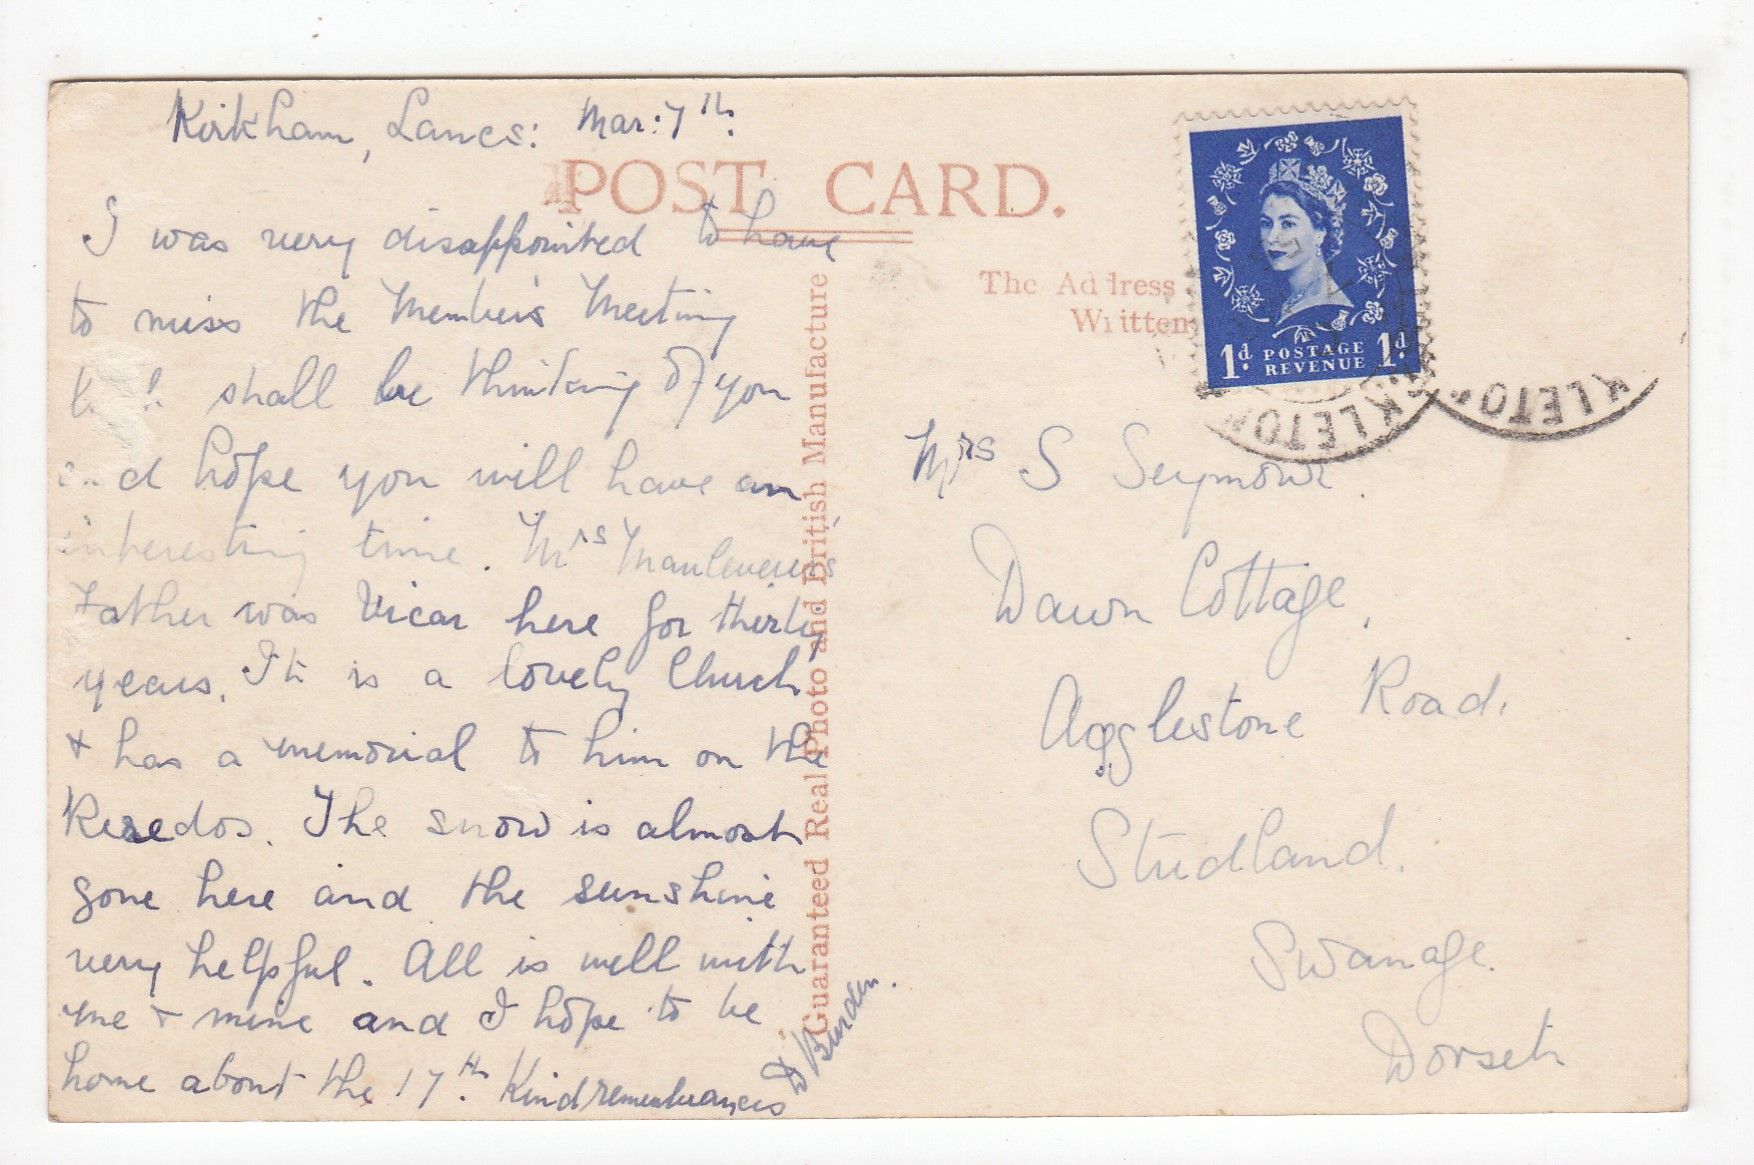 Kirkham, Lancs: Mar: 7th.
POST CARD.
I was very disappointed to have
to miss the Members Meeting
but shall be thinking of you
and hope you will have an
interesting time. Mrs Mauleverer's
Father was Vicar here for thirty
years. It is a lovely Church
+ has a memorial to him on the
Reredos. The snow is almost
gone here and the sunshine
very helpful. All is well with
me + mine and I hope to be
home about the 17th. Kind remembrances
D Burden.
Guaranteed Real Photo and British Manufacture
The Address
Written
1d POSTAGE 1d
REVENUE
KLETON
KLETO
Mrs S Seymour.
Dawn Cottage,
Agglestone Road.
Studland.
Swanage.
Dorset